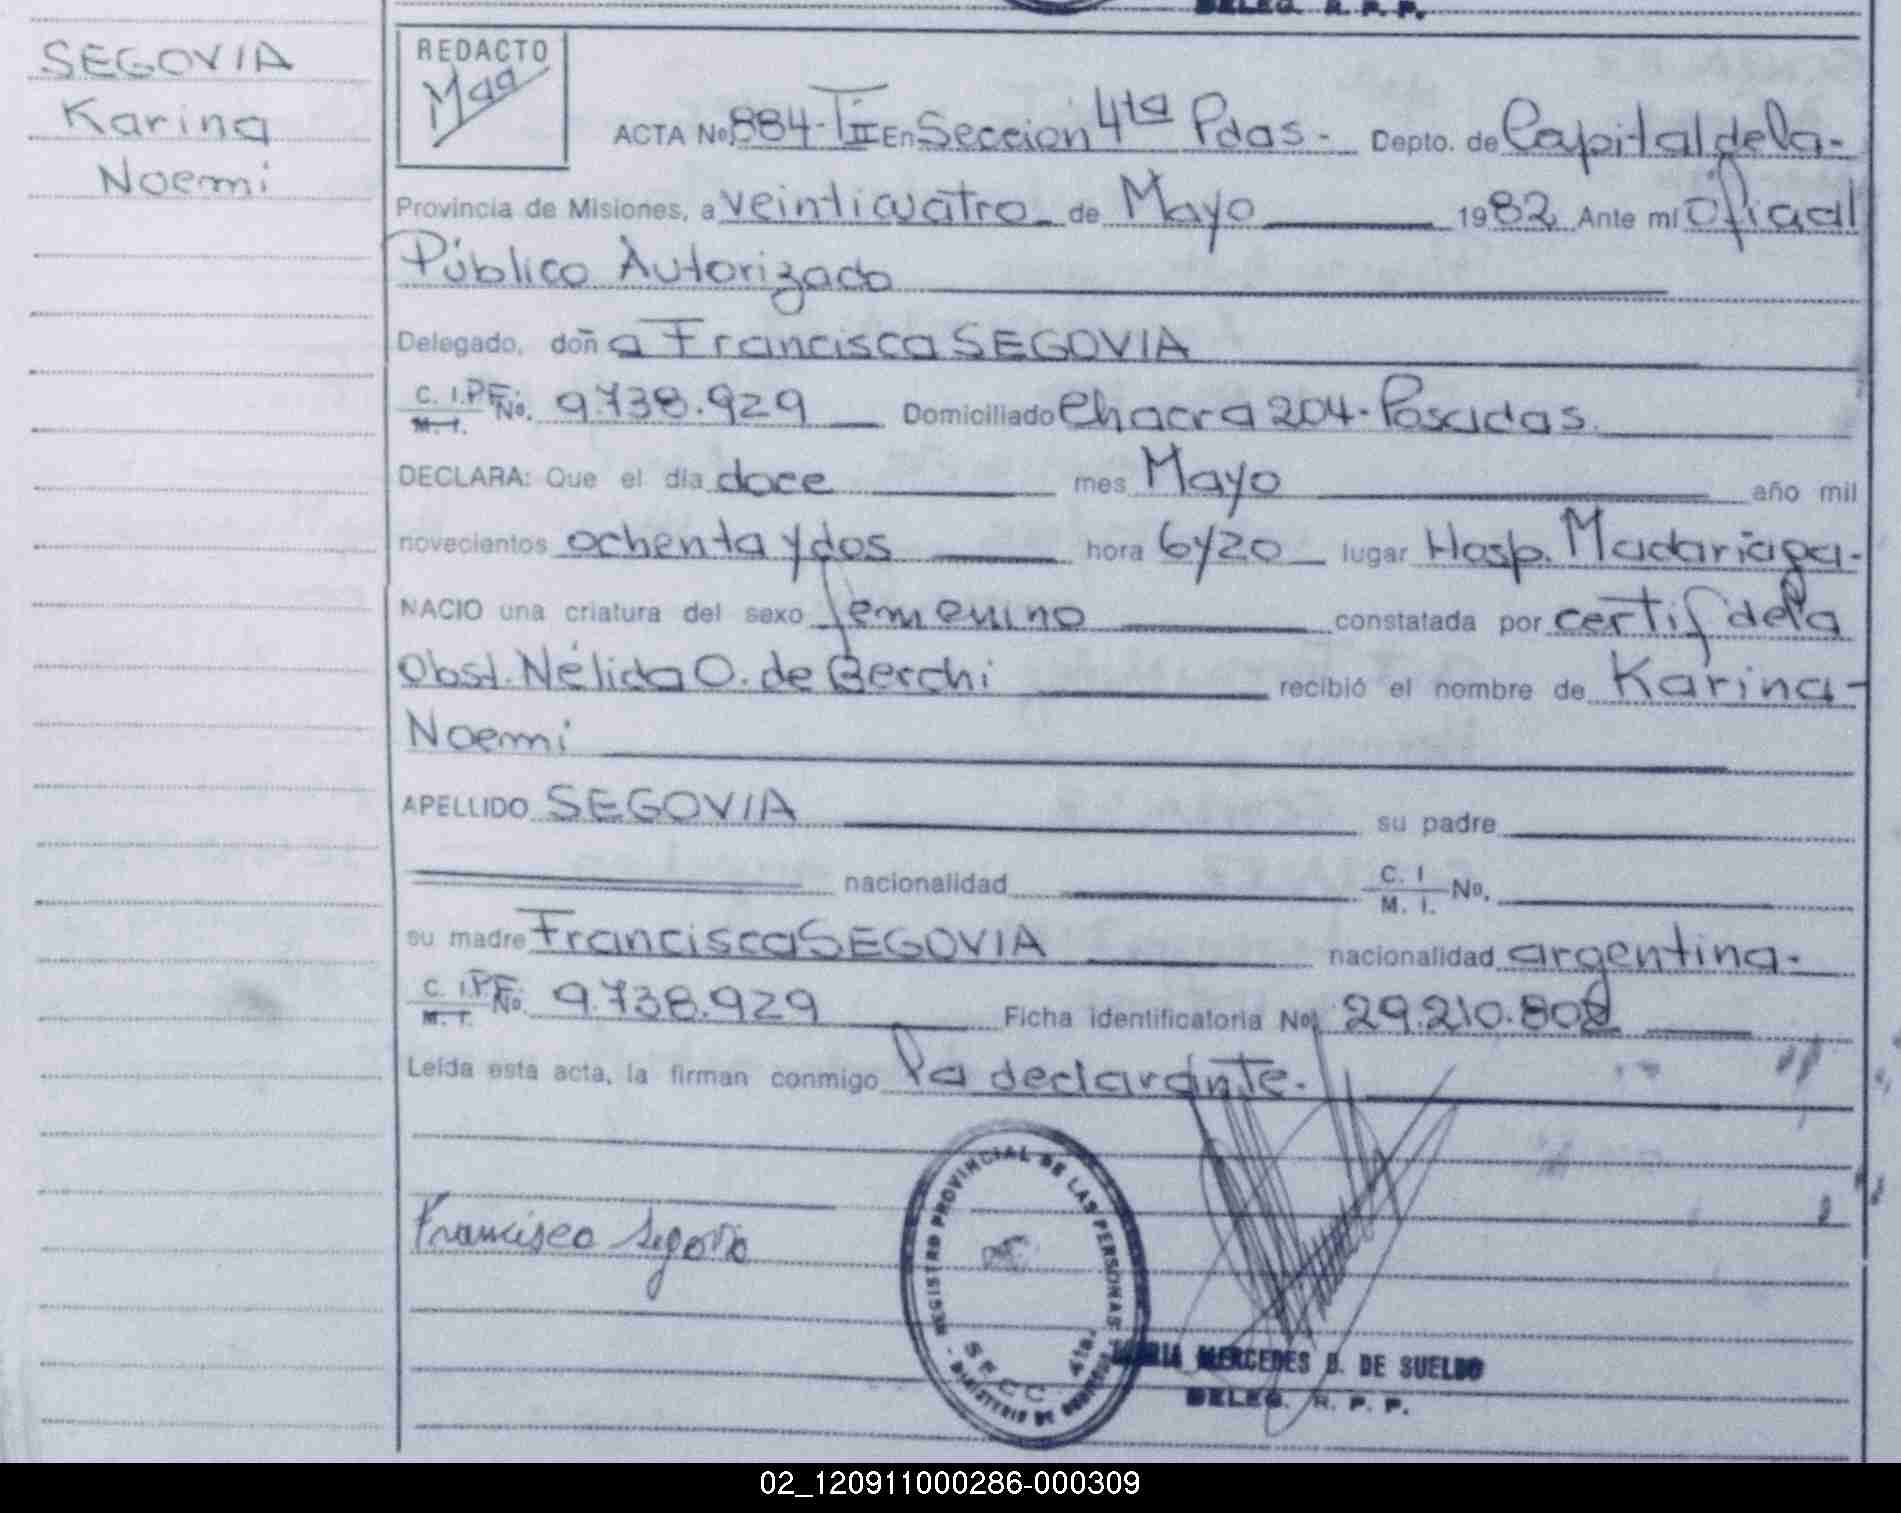 DELEG. R. P. P.
SEGOVIA
Karina
Noemi
REDACTO
Maa
ACTA No. 884-T II En Seccion 4ta Pdas - Depto. de Capital de la-
Provincia de Misiones, a veinticuatro - de Mayo 1982 Ante mi Oficial
Público Autorizado
Delegado, doña Francisca SEGOVIA
C. I. P.F. No. 9.738.929 Domiciliado Chacra 204-Posadas.
M. I.
DECLARA: Que el día doce mes Mayo año mil
novecientos ochenta y dos hora 6y20 lugar Hosp. Madariaga-
NACIO una criatura del sexo femenino constatada por certif de la
Obst. Nélida O. de Berchi recibió el nombre de Karina-
Noemi
APELLIDO SEGOVIA su padre
nacionalidad C. I No.
M. I.
su madre Francisca SEGOVIA nacionalidad argentina.
C. I. P.F. No. 9.738.929 Ficha identificatoria No. 29.210.808
M. I.
Leída esta acta, la firman conmigo la declarante.
Francisca Segovia
REGISTRO PROVINCIAL DE LAS PERSONAS
SECC. 4ta.
- MINISTERIO DE GOBIERNO
MARIA MERCEDES B. DE SUELDO
DELEG. R. P. P.
02_120911000286-000309